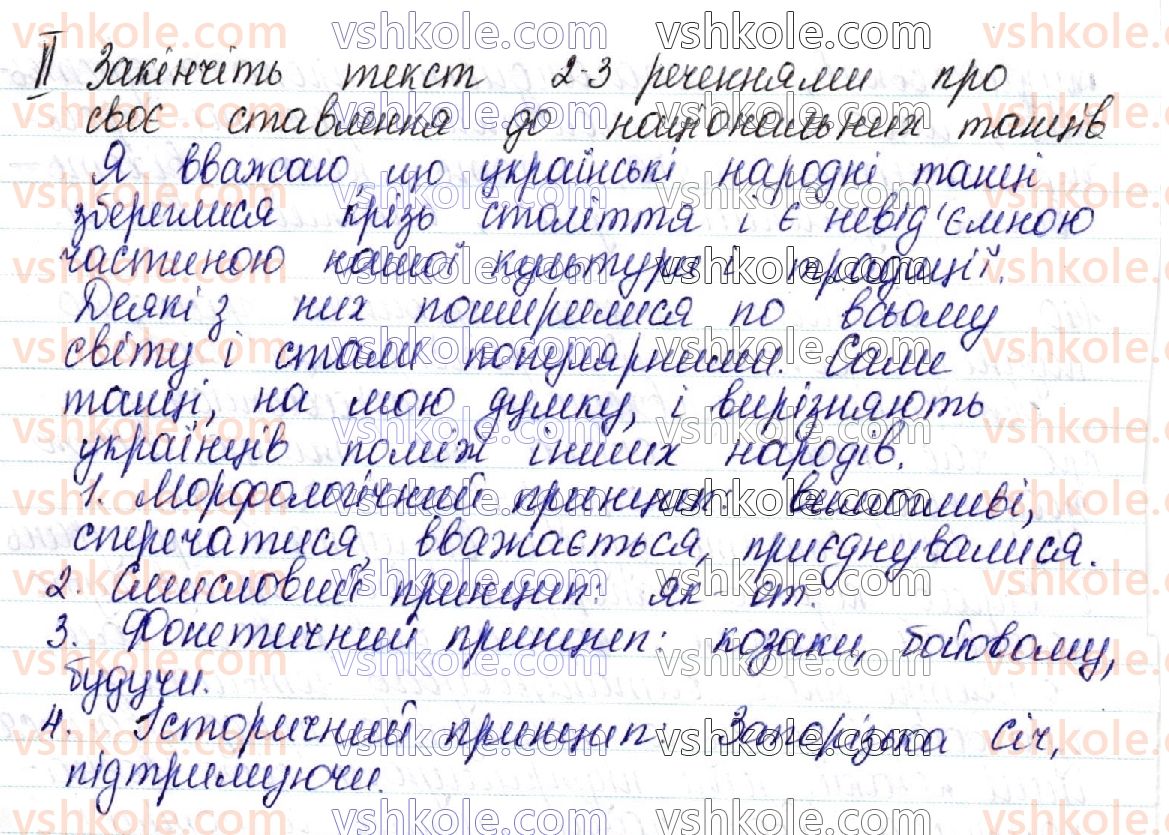 ІІ Закінчіть текст 2-3 реченнями про
своє ставлення до національних танців
Я вважаю, що українські народні танці
збереглися крізь століття і є невід'ємною
частиною нашої культури і традиції.
Деякі з них поширилися по всьому
світу і стали популярними. Саме
танці, на мою думку, і вирізняють
українців поміж інших народів.
1. Морфологічний принцип:
сперечатися, вважається, приєднувалися.
2. Смисловий принцип: як-от.
3. Фонетичний принцип: козаки, бойовому,
будучи.
4. Історичний принцип: Запорізька Січ,
підтримуючи.
vshkole.com